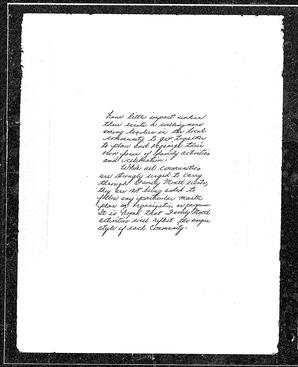 have little impact unless
there exists a willingness
among leaders in the local
community to get together
to plan and organize their
own form of family activities
and celebration.
While all communities
are strongly urged to carry
through Family Month,
they are not being asked to
follow any particular master
plan or organization or program.
It is hoped that Family Month
activities will reflect the unique
style of each community.